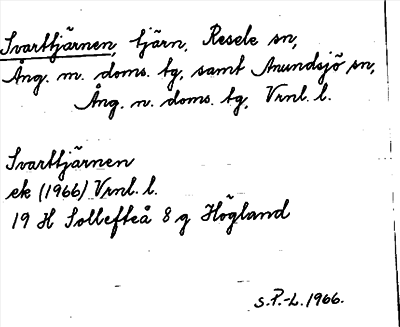 Svarttjärnen, tjärn, Resele sn,
Ång. m. doms. tg, samt Anundsjö sn,
Ång. n. doms. tg, Vrnl. l.
Svarttjärnen
ek (1966) Vrnl. l.
19 H Sollefteå 8 g Högland
S.P.-L. 1966.